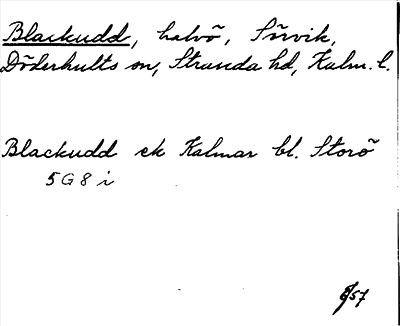 Blackudd, halvö, Sörvik,
Döderhults sn, Stranda hd, Kalm. l.
Blackudd ek Kalmar bl. Storö
5 G 8 i